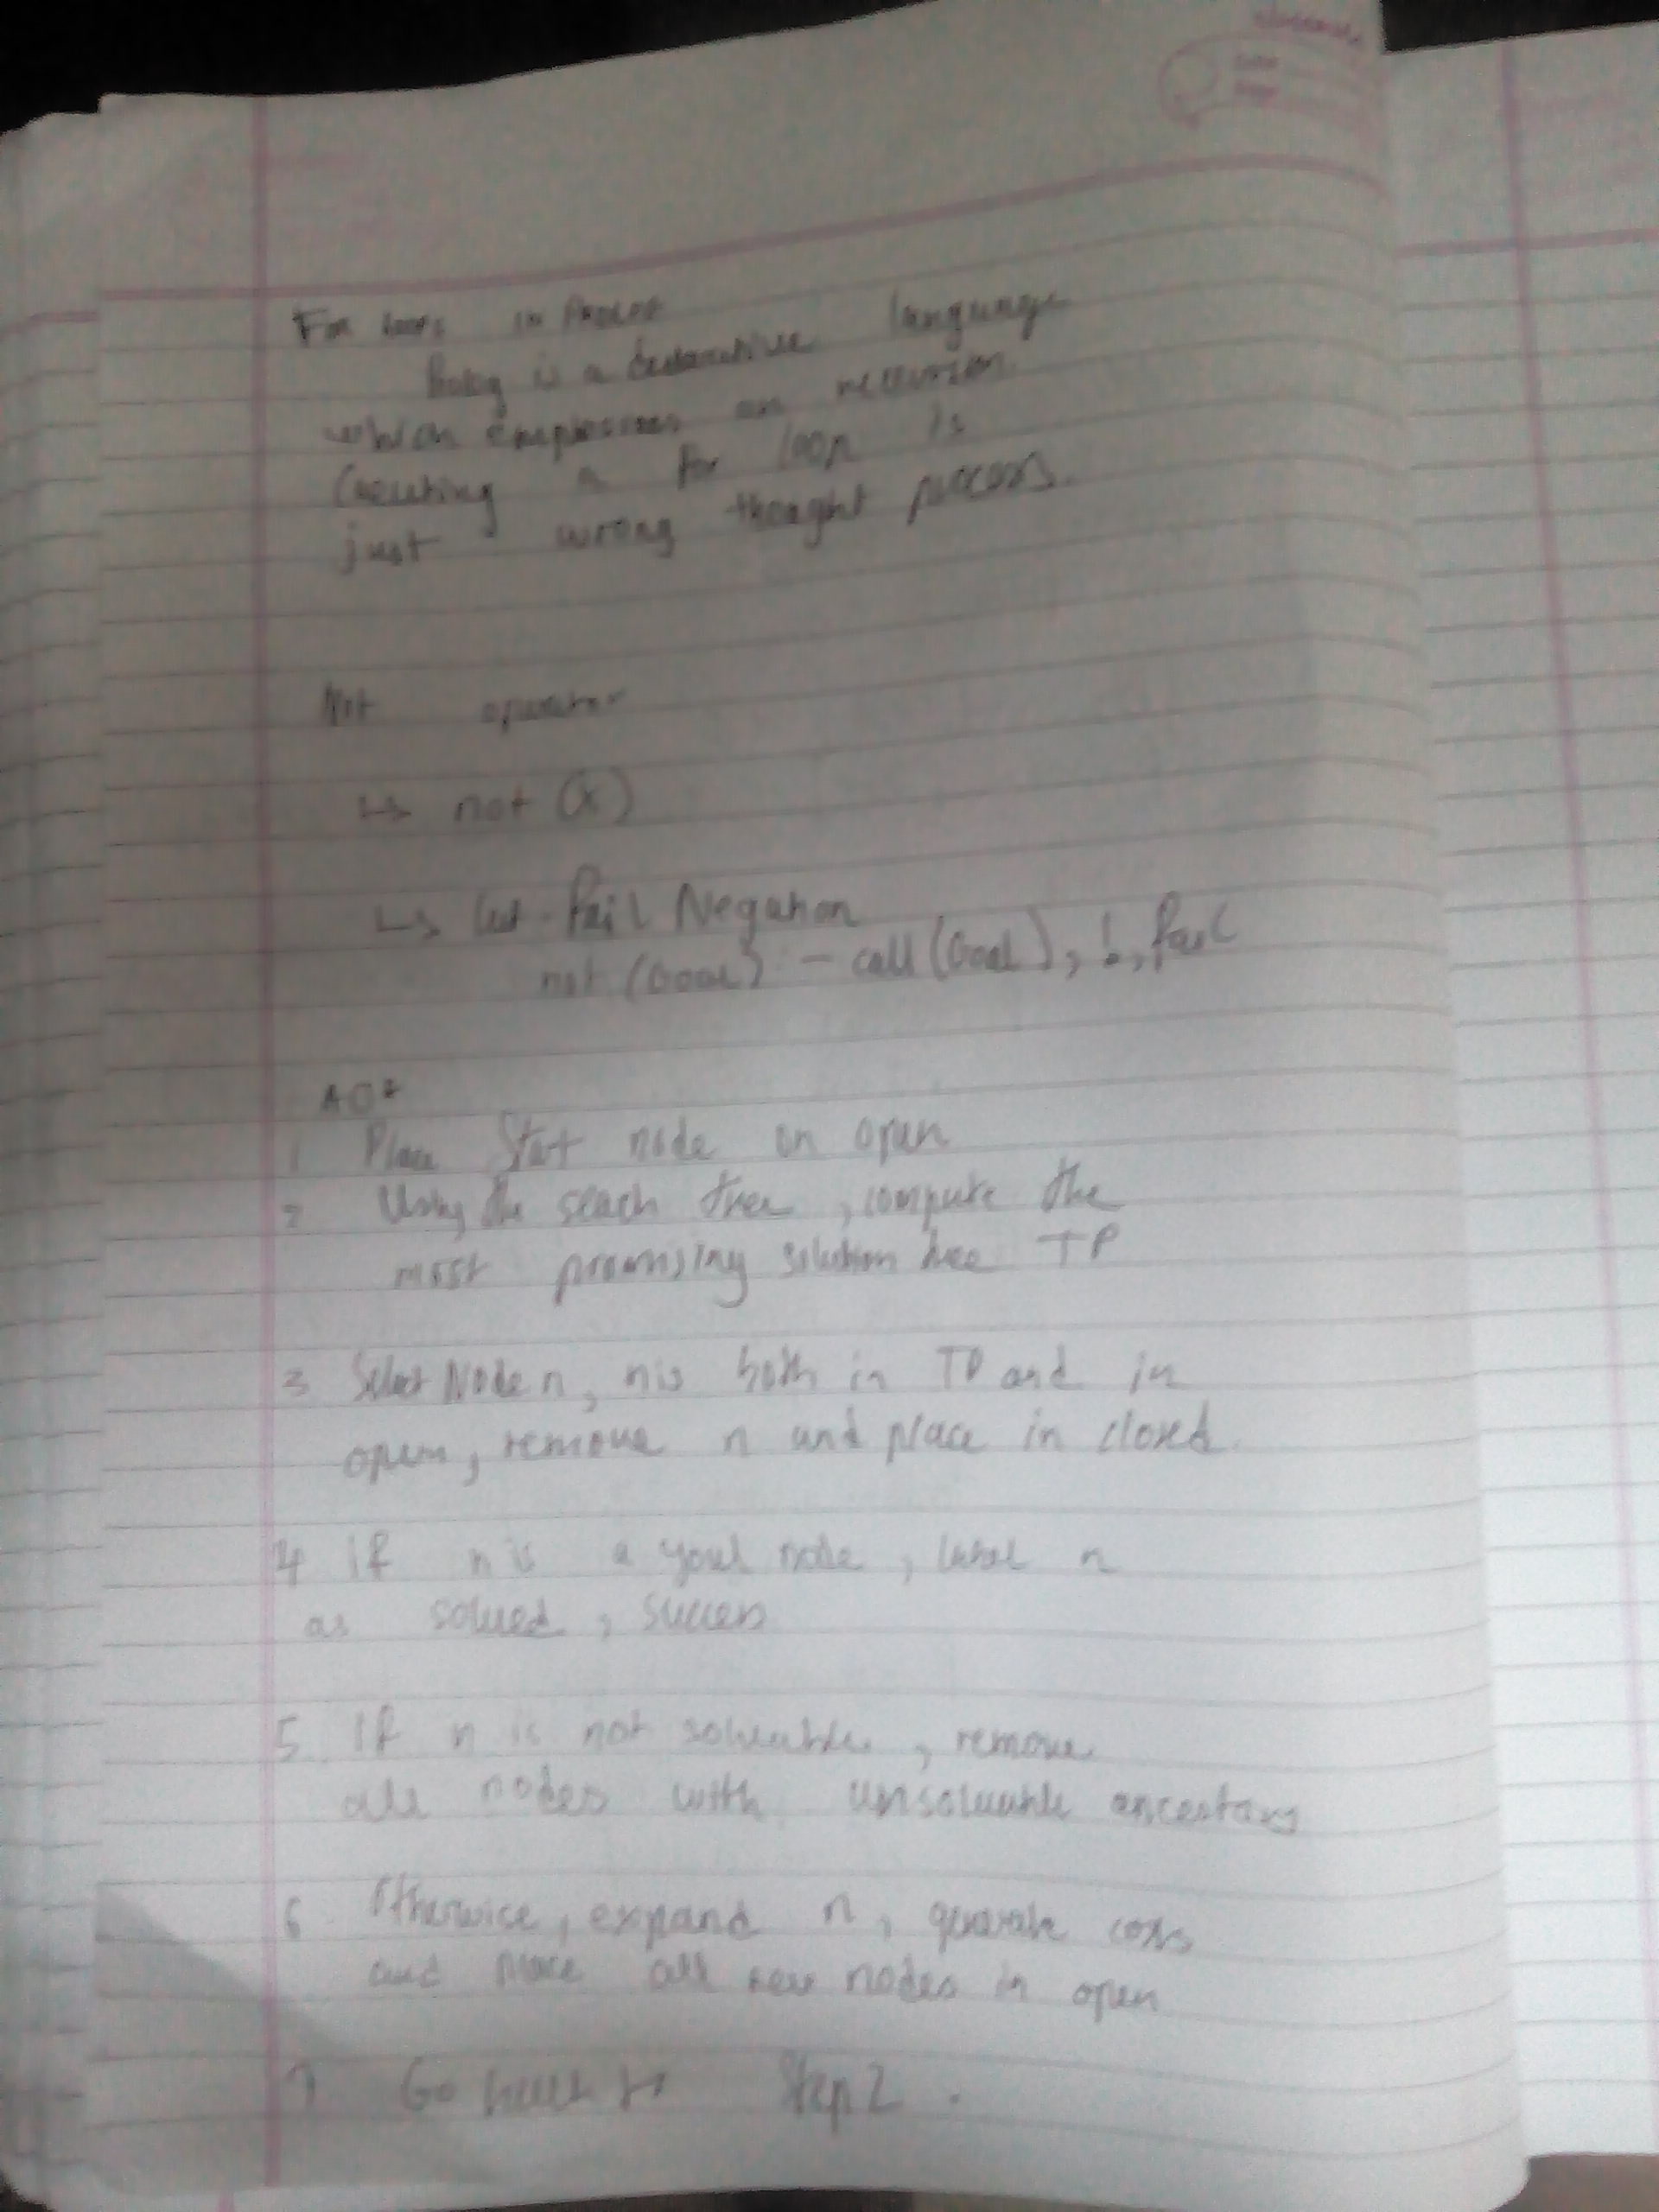 For loops in Prolog
Prolog is a declarative language
which emphasizes on recursion.
Creating a for loop is
just wrong thought process.
Not operator
↳ not (X)
↳ Cut-Fail Negation
not (Goal) :- call (Goal), !, fail
AO*
1 Place Start node on open
2 Using the seach tree, compute the
most promising solution tree TP
3 Select Node n, n is both in TP and in
open, remove n and place in closed.
4 If n is a goal node, label n
as solved, success
5 If n is not solvable, remove
all nodes with unsolvable ancestors
6 Otherwice, expand n, generate costs
and place all new nodes in open
7 Go back to Step 2.